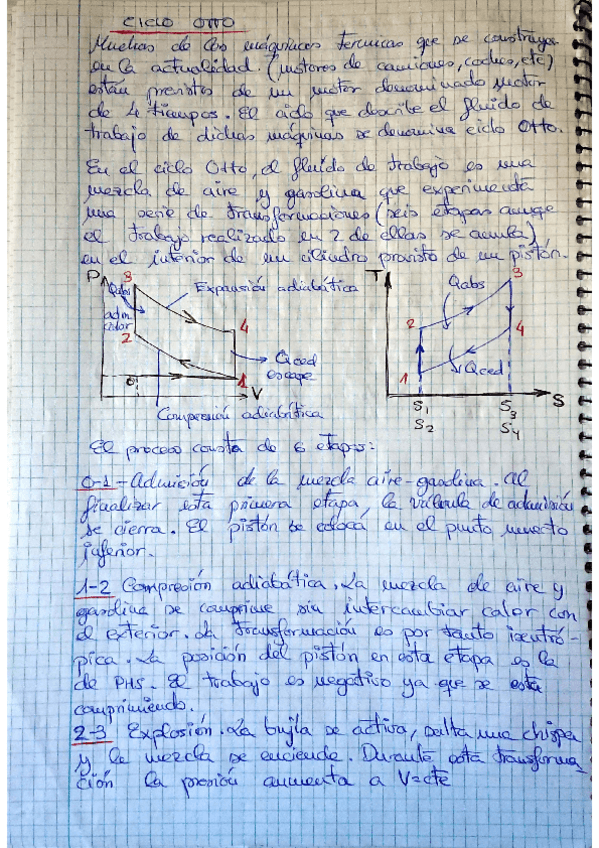 CICLO OTTO
Muchas de las máquinas termicas que se construyen
en la actualidad. (motores de camiones, coches, etc)
están provistos de un motor denominado motor
de 4 tiempos. El ciclo que describe el fluido de
trabajo de dichas máquinas se denomina ciclo Otto.
En el ciclo Otto, el fluido de trabajo es una
mezcla de aire y gasolina que experimenta
una serie de transformaciones (seis etapas aunque
el trabajo realizado en 2 de ellas se anula)
en el interior de un cilindro provisto de un pistón.
P 3 Qabs Expansión adiabática
2 4
Qced
escape
0 1 V
Compresión adiabática
T 3
Qabs
2 4
1 Qced
S1 S3 S
S2 S4
El proceso consta de 6 etapas:
0-1-Admisión de la mezcla aire-gasolina. Al
finalizar esta primera etapa, la válvula de admisión
se cierra. El pistón se coloca en el punto muerto
inferior.
1-2 Compresión adiabática. La mezcla de aire y
gasolina se comprime sin intercambiar calor con
el exterior. La transformación es por tanto isentró-
pica. La posición del pistón en esta etapa es la
de PMS. El trabajo es negativo ya que se está
comprimiendo.
2-3 Explosión. La bujía se activa, salta una chispa
y la mezcla se enciende. Durante esta transforma
ción la presión aumenta a V=cte